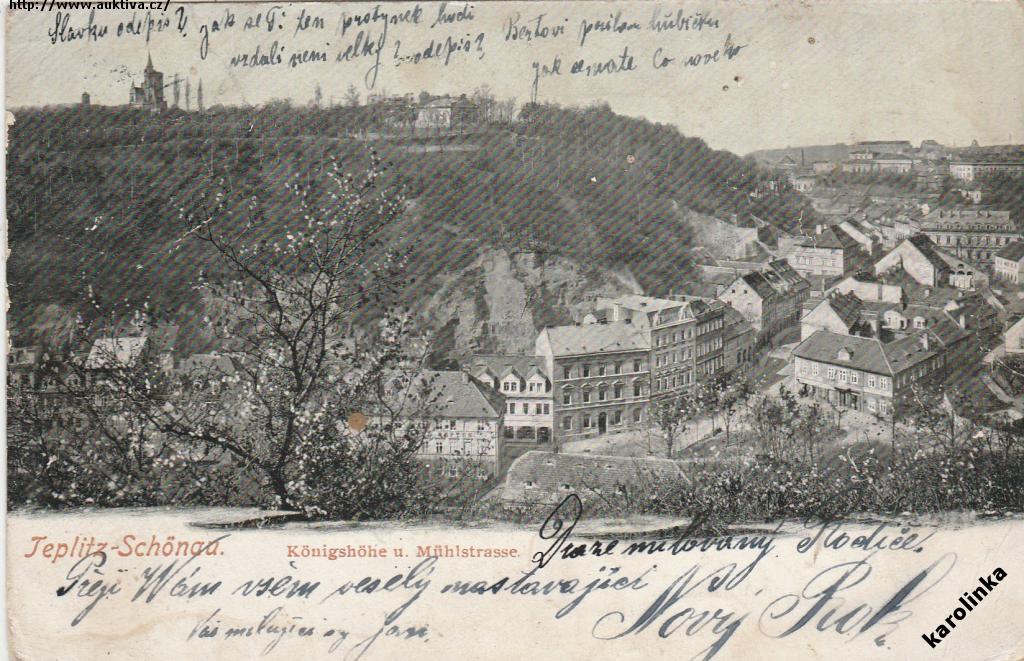 http://www.auktiva.cz/
Slavku odepiš? jak se Ti ten prstýnek hodí
vzdali není velký? odepiš?
Bertovi posílam hubičku
jak se máte Co nového
Teplitz-Schönau.
Königshöhe u. Mühlstrasse.
Draze milovaný Rodiče.
Přeji Wám všem veselý nastavající Nový Rok
Vás milující syn Jan.
karolinka